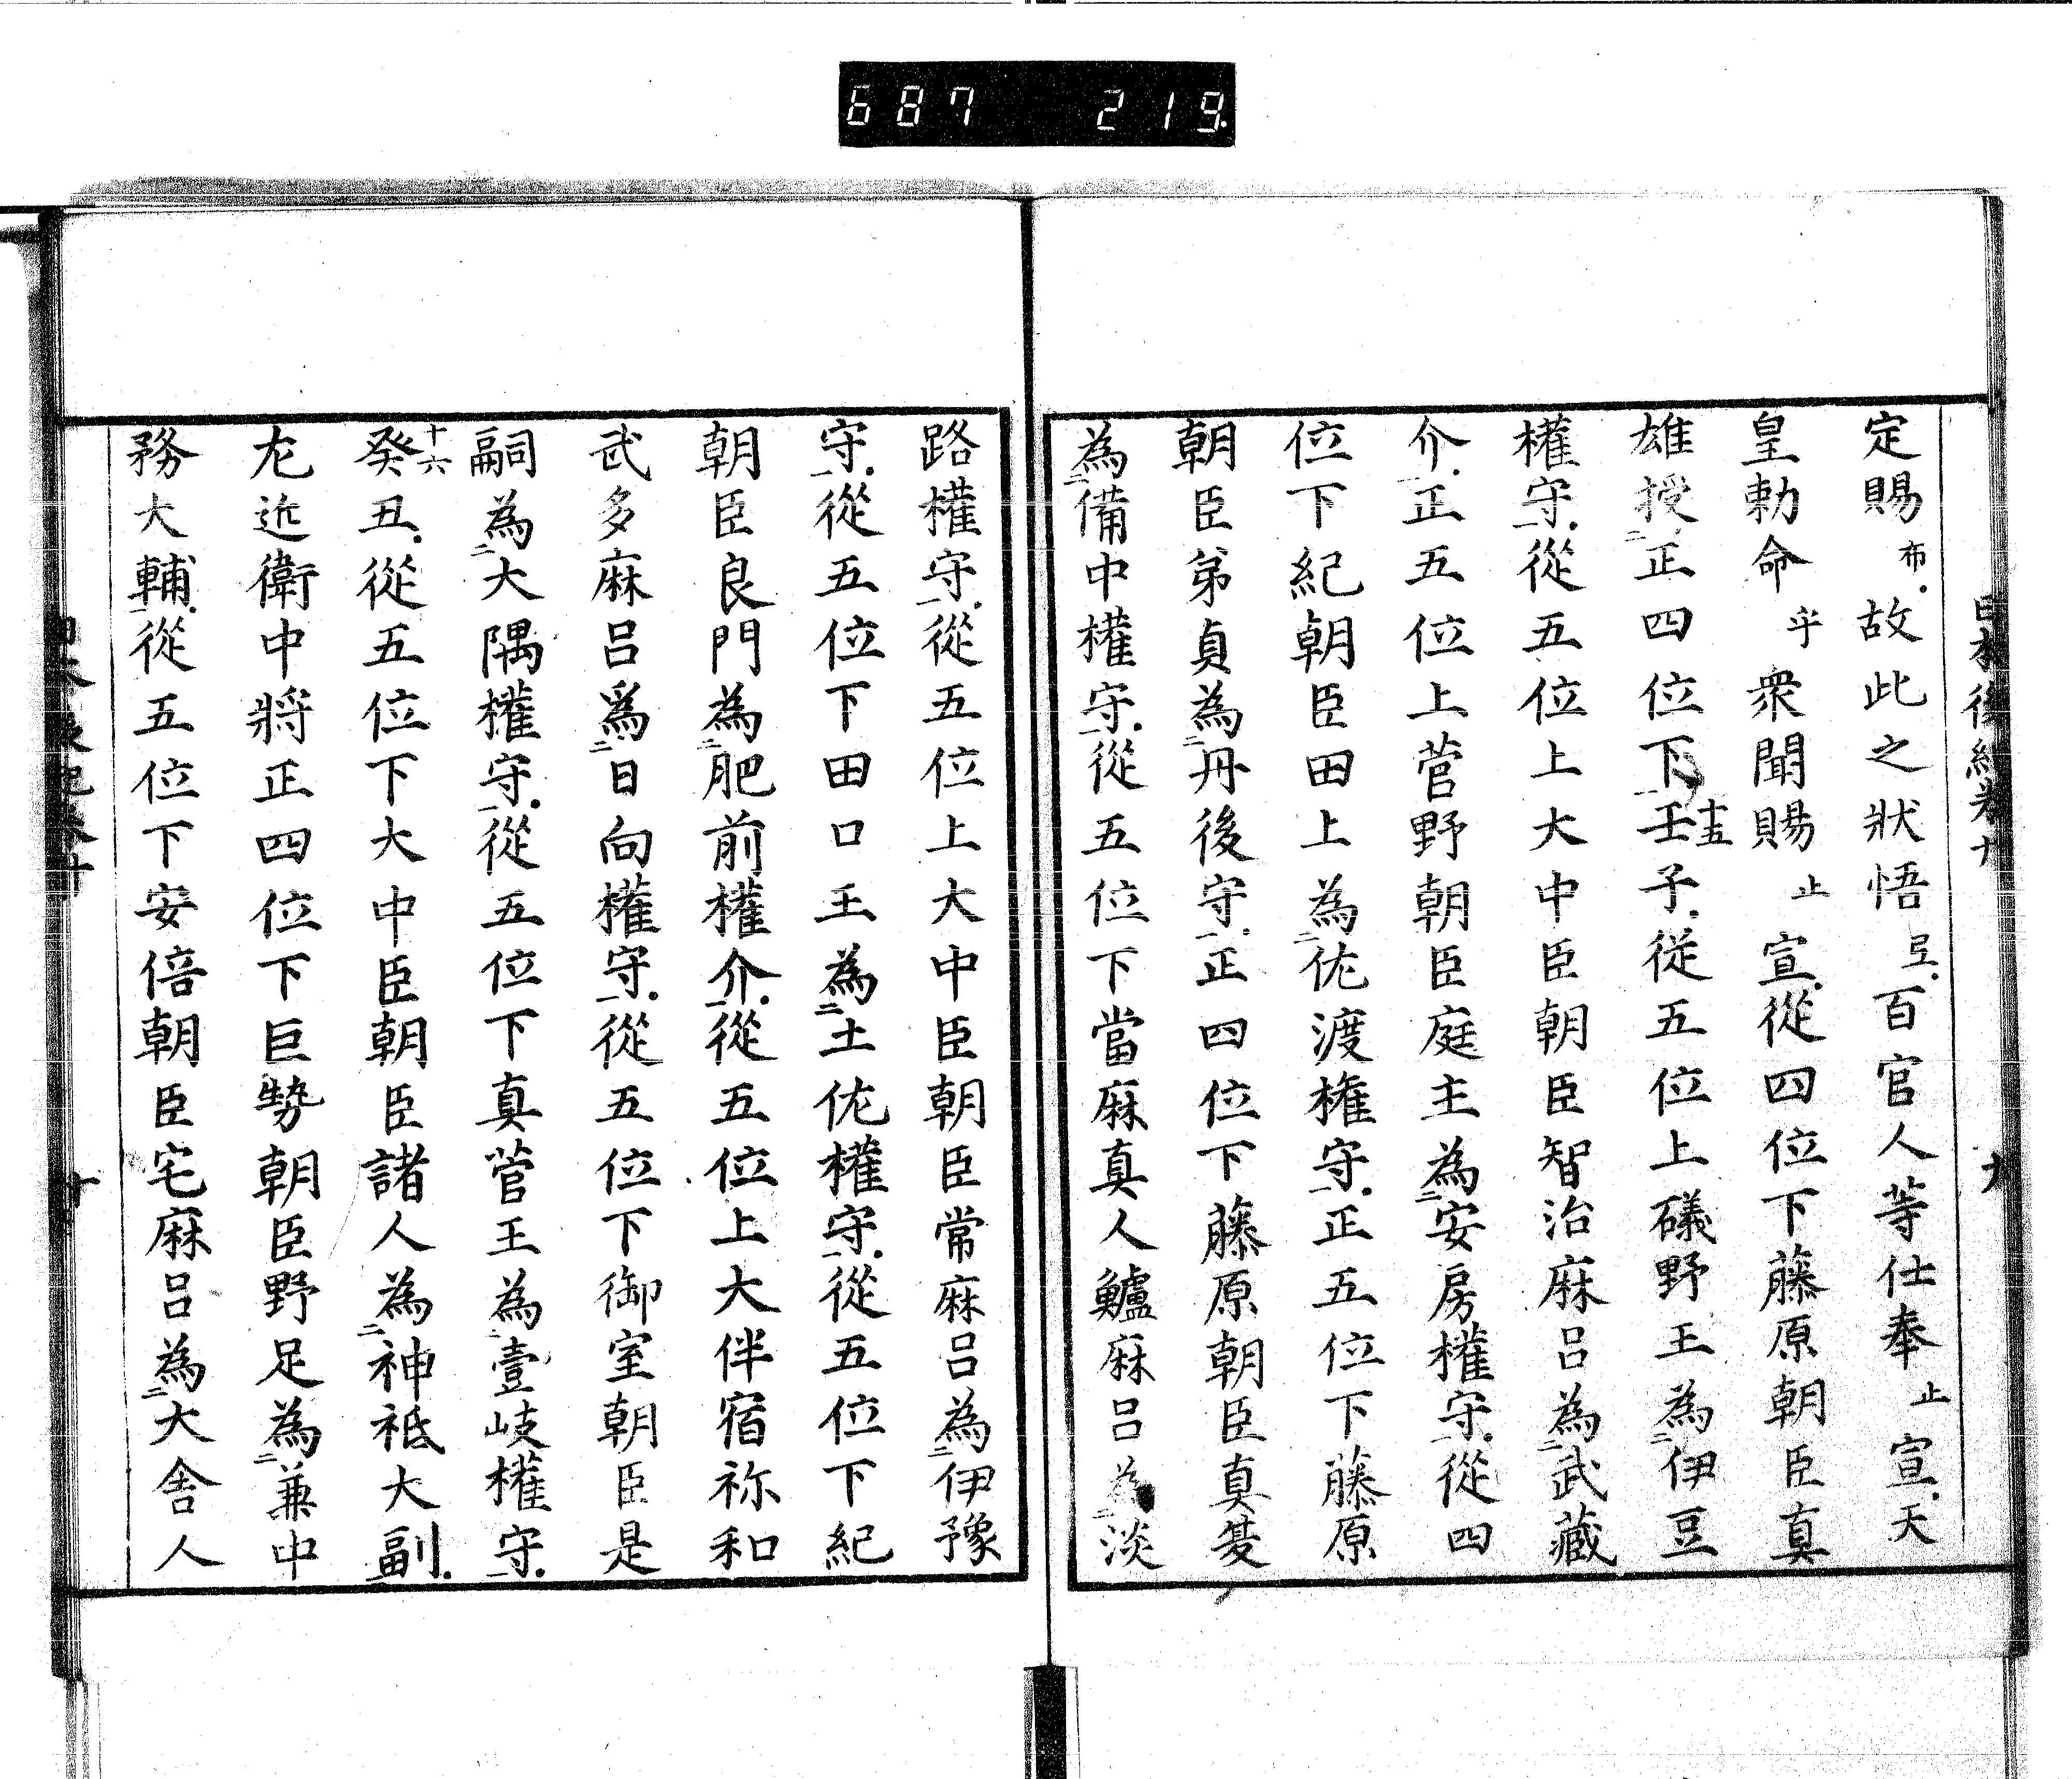 687 219.
日本後紀卷十
九
定賜布故此之狀悟呂百官人等仕奉止宣天
皇勅命乎衆聞賜止宣從四位下藤原朝臣真
雄授二正四位下一十五壬子從五位上礒野王為二伊豆
權守一從五位上大中臣朝臣智治麻呂為二武藏
介一正五位上菅野朝臣庭主為二安房權守一從四
位下紀朝臣田上為二佐渡權守一正五位下藤原
朝臣弟貞為二丹後守一正四位下藤原朝臣真夏
為二備中權守一從五位下當麻真人鱸麻呂為二淡
路權守一從五位上大中臣朝臣常麻呂為二伊豫
守一從五位下田口王為二土佐權守一從五位下紀
朝臣良門為二肥前權介一從五位上大伴宿祢和
武多麻呂為二日向權守一從五位下御室朝臣是
嗣為二大隅權守一從五位下真菅王為二壹岐權守一
十六癸丑從五位下大中臣朝臣諸人為二神祇大副
左近衛中將正四位下巨勢朝臣野足為二兼中
務大輔一從五位下安倍朝臣宅麻呂為二大舍人
十